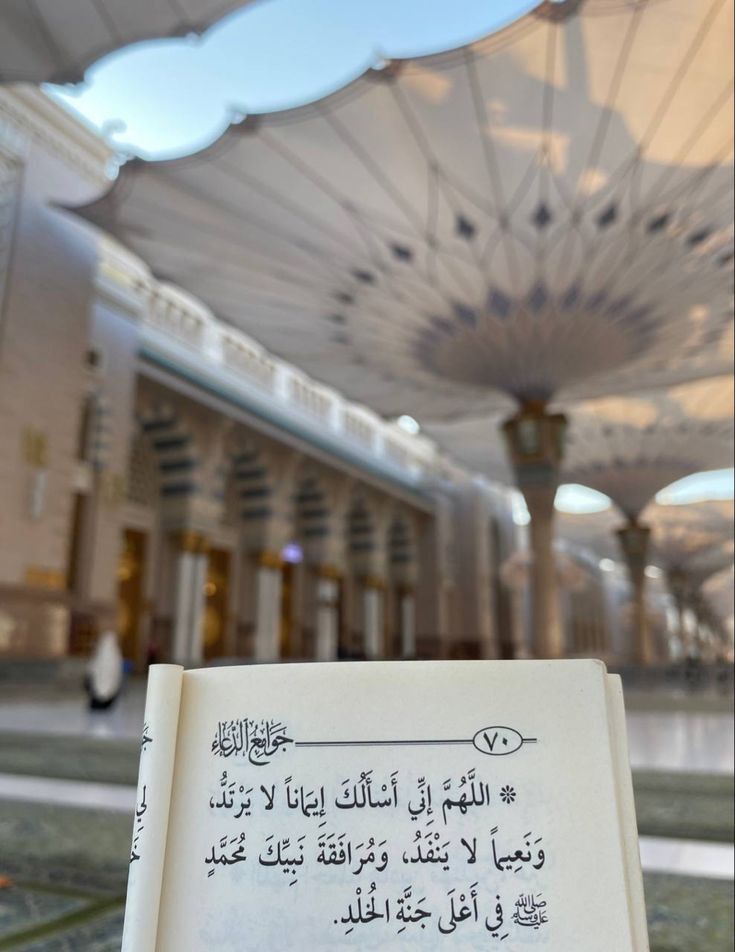 جَوَامِعُ الدُّعَاءِ ٧٠
* اللَّهُمَّ إِنِّي أَسْأَلُكَ إِيمَاناً لا يَرْتَدُّ،
وَنَعِيماً لا يَنْفَدُ، وَمُرَافَقَةَ نَبِيِّكَ مُحَمَّدٍ
ﷺ فِي أَعْلَى جَنَّةِ الْخُلْدِ.